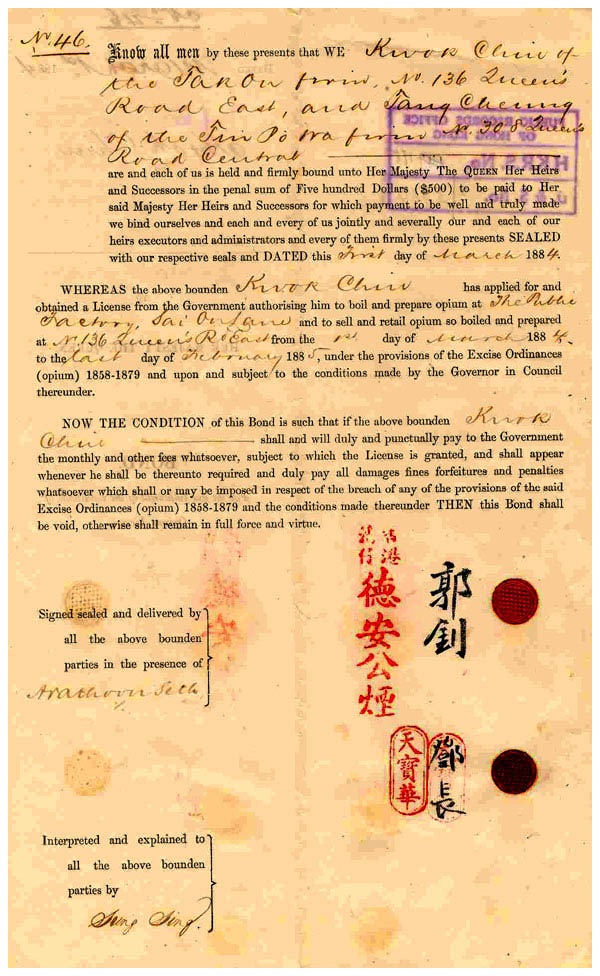 No. 46.
Know all men by these presents that WE Kwok Chiu of
the Tak On firm, No. 136 Queen's
Road East, and Tang Cheung
of the Tin Po Wa firm No. 308 Queen's
Road Central
are and each of us is held and firmly bound unto Her Majesty The QUEEN Her Heirs
and Successors in the penal sum of Five hundred Dollars ($500) to be paid to Her
said Majesty Her Heirs and Successors for which payment to be well and truly made
we bind ourselves and each and every of us jointly and severally our and each of our
heirs executors and administrators and every of them firmly by these presents SEALED
with our respective seals and DATED this first day of March 1884.
WHEREAS the above bounden Kwok Chiu has applied for and
obtained a License from the Government authorising him to boil and prepare opium at The Public
Factory, Sai On Lane and to sell and retail opium so boiled and prepared
at No. 136 Queen's Rd East from the 1st day of March 1884.
to the last day of February 1885, under the provisions of the Excise Ordinances
(opium) 1858-1879 and upon and subject to the conditions made by the Governor in Council
thereunder.
NOW THE CONDITION of this Bond is such that if the above bounden Kwok
Chiu shall and will duly and punctually pay to the Government
the monthly and other fees whatsoever, subject to which the License is granted, and shall appear
whenever he shall be thereunto required and duly pay all damages fines forfeitures and penalties
whatsoever which shall or may be imposed in respect of the breach of any of the provisions of the said
Excise Ordinances (opium) 1858-1879 and the conditions made thereunder THEN this Bond shall
be void, otherwise shall remain in full force and virtue.
香港
灣仔
德安公煙
郭釗
Signed sealed and delivered by
all the above bounden
parties in the presence of
Arathoon Seth
天寶華
鄧長
Interpreted and explained to
all the above bounden
parties by
Sung Sing